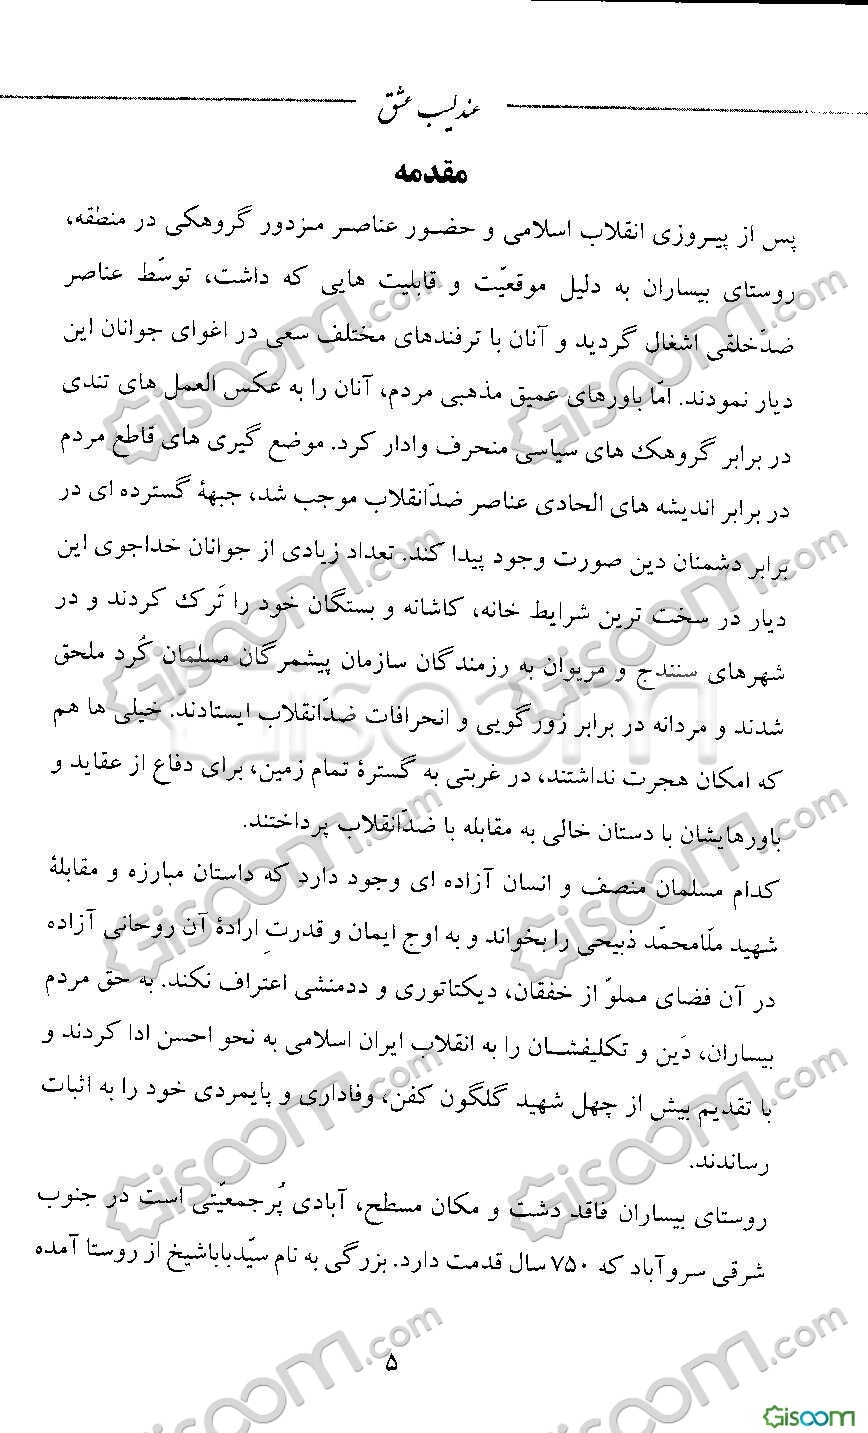 عندلیب عشق
مقدمه
پس از پیروزی انقلاب اسلامی و حضور عناصر مزدور گروهکی در منطقه،
روستای بیساران به دلیل موقعیّت و قابلیت هایی که داشت، توسّط عناصر
ضدّخلقی اشغال گردید و آنان با ترفندهای مختلف سعی در اغوای جوانان این
دیار نمودند. امّا باورهای عمیق مذهبی مردم، آنان را به عکس العمل های تندی
در برابر گروهک های سیاسی منحرف وادار کرد. موضع گیری های قاطع مردم
در برابر اندیشه های الحادی عناصر ضدّانقلاب موجب شد، جبههٔ گسترده ای در
برابر دشمنان دین صورت وجود پیدا کند. تعداد زیادی از جوانان خداجوی این
دیار در سخت ترین شرایط خانه، کاشانه و بستگان خود را تَرک کردند و در
شهرهای سنندج و مریوان به رزمندگان سازمان پیشمرگان مسلمان کُرد ملحق
شدند و مردانه در برابر زورگویی و انحرافات ضدّانقلاب ایستادند. خیلی ها هم
که امکان هجرت نداشتند، در غربتی به گسترهٔ تمام زمین، برای دفاع از عقاید و
باورهایشان با دستان خالی به مقابله با ضدّانقلاب پرداختند.
کدام مسلمان منصف و انسان آزاده ای وجود دارد که داستان مبارزه و مقابلهٔ
شهید ملّامحمّد ذبیحی را بخواند و به اوج ایمان و قدرتِ ارادهٔ آن روحانی آزاده
در آن فضای مملوّ از خفقان، دیکتاتوری و ددمنشی اعتراف نکند. به حق مردم
بیساران، دَین و تکلیفشان را به انقلاب ایران اسلامی به نحو احسن ادا کردند و
با تقدیم بیش از چهل شهید گلگون کفن، وفاداری و پایمردی خود را به اثبات
رساندند.
روستای بیساران فاقد دشت و مکان مسطح، آبادی پُرجمعیّتی است در جنوب
شرقی سروآباد که ۷۵۰ سال قدمت دارد. بزرگی به نام سیّدباباشیخ از روستا آمده
۵
Gisoom